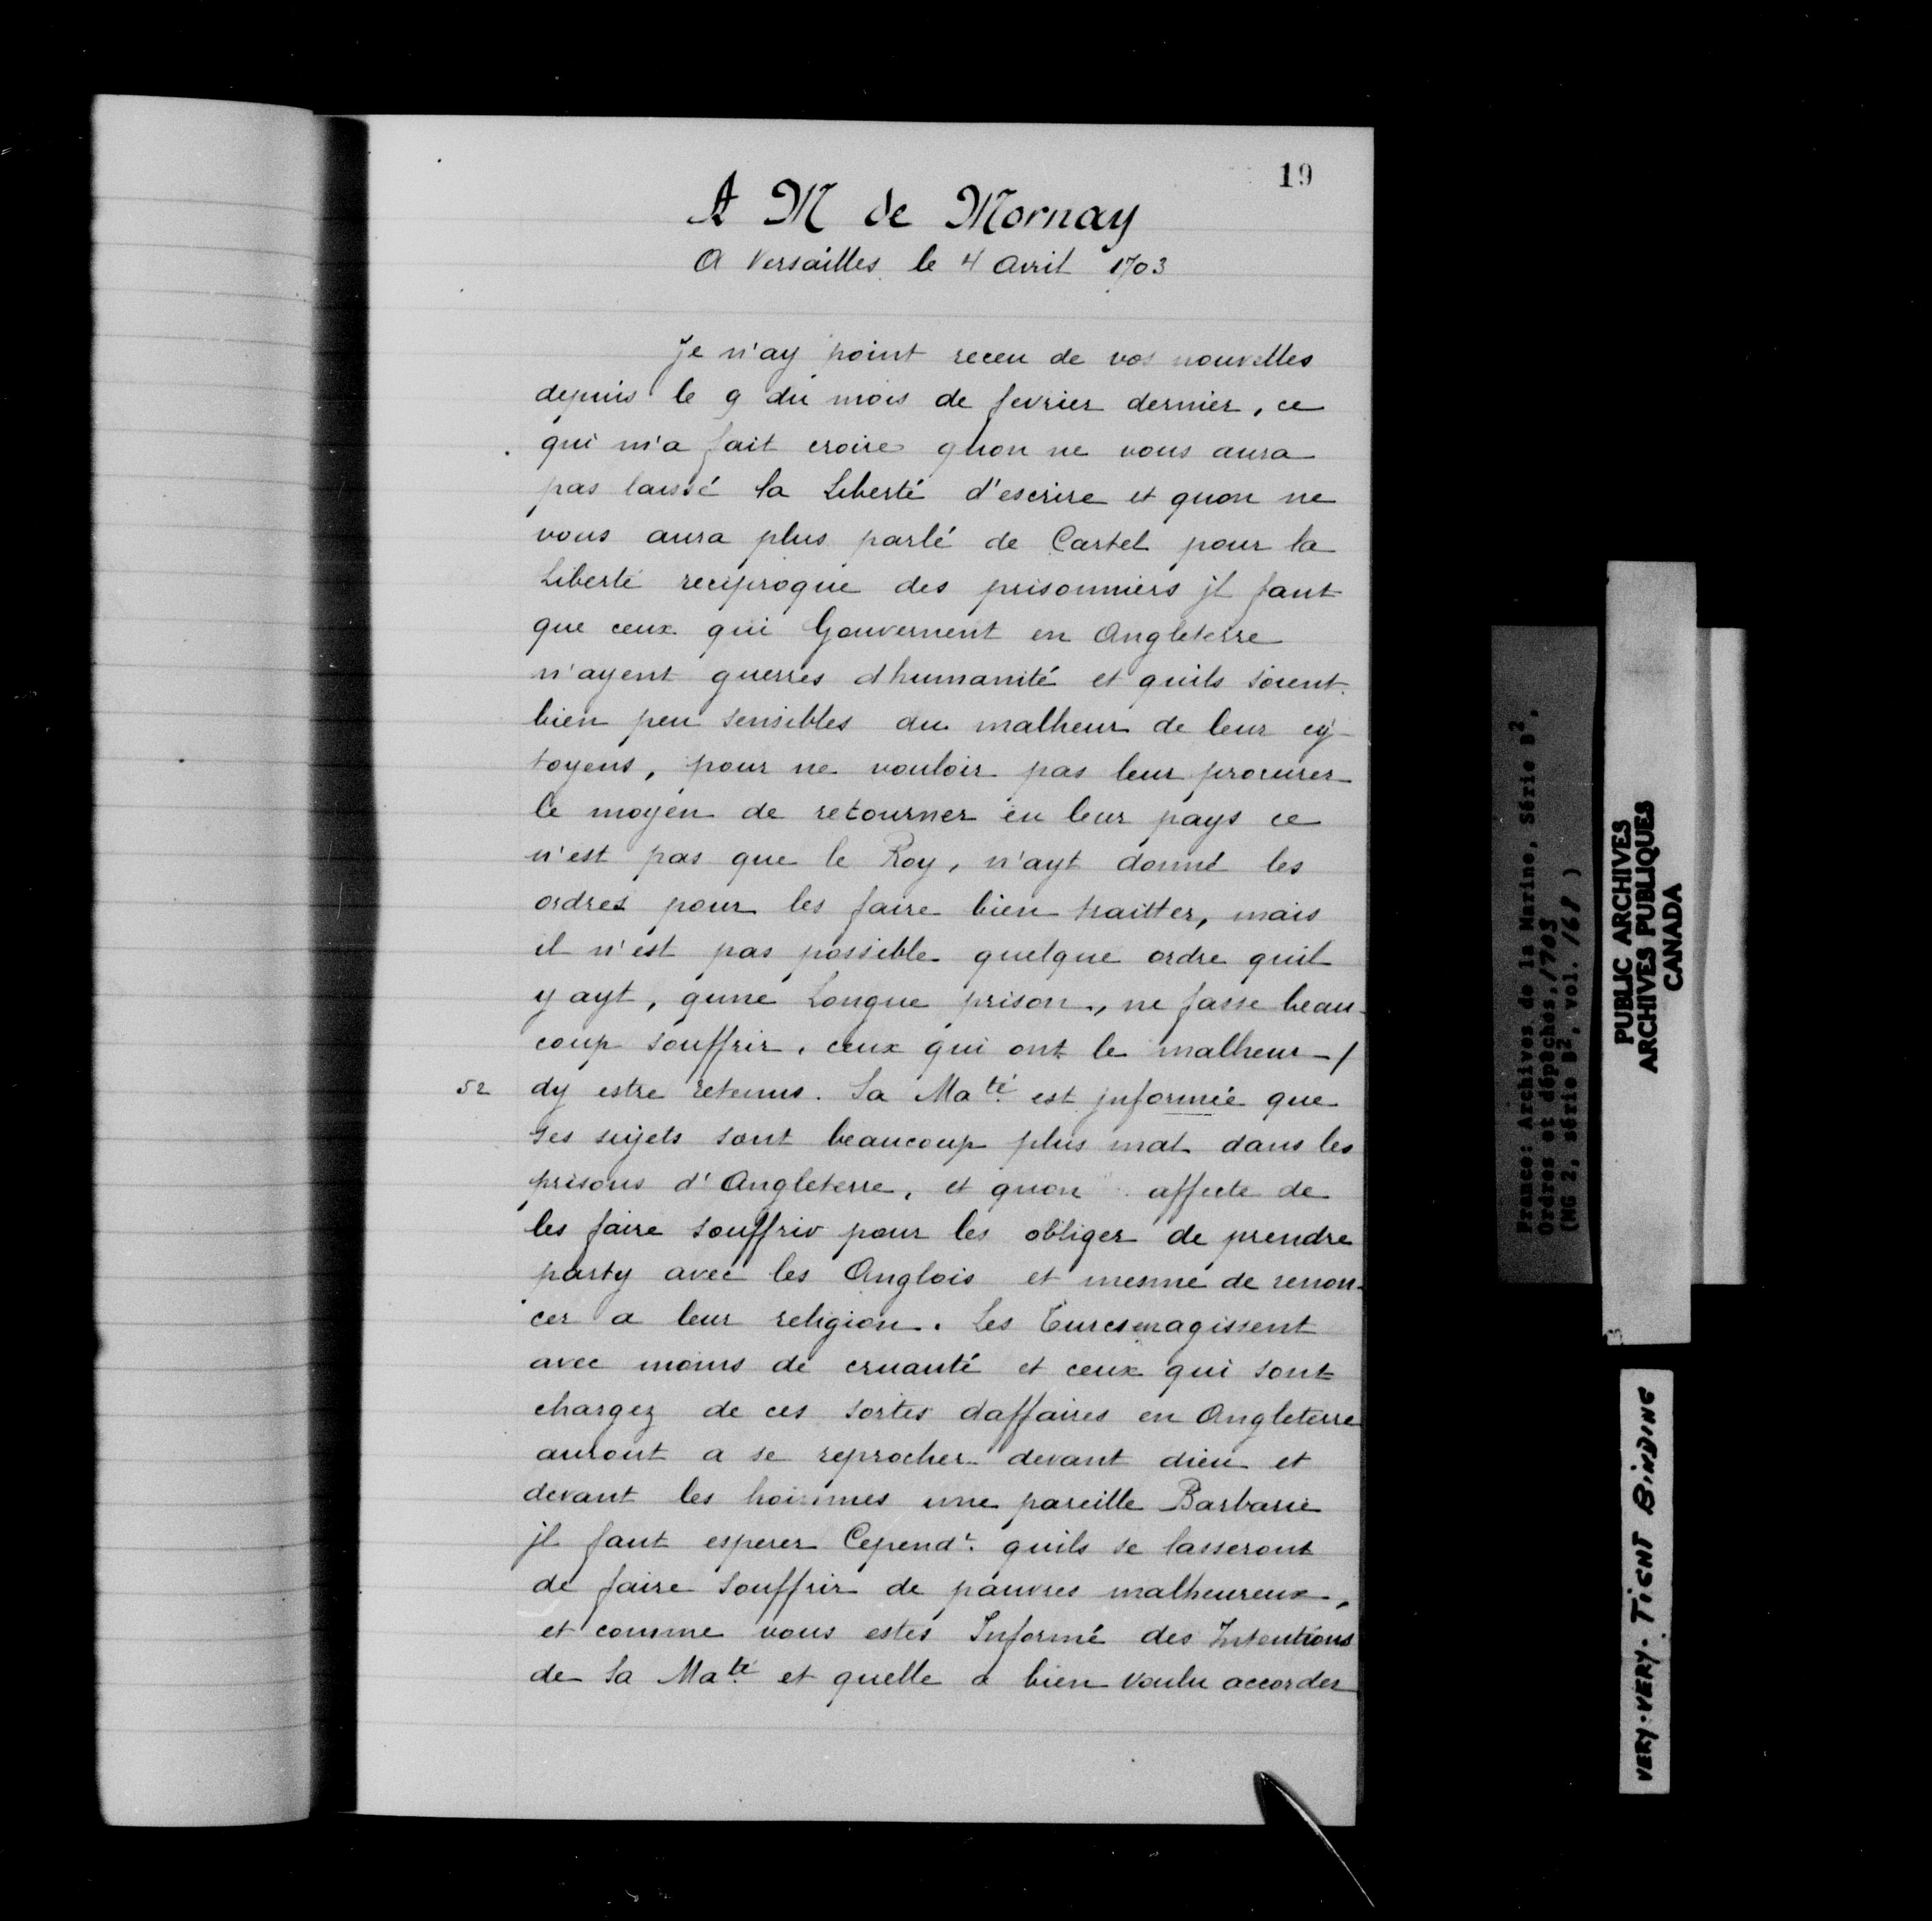 19
A M de Mornay
A Versailles le 4 avril 1703
Je n'ay point receu de vos nouvelles
depuis le 9 du mois de fevrier dernier, ce
qui m'a fait croire quon ne vous aura
pas laissé la Liberté d'escrire et quon ne
vous aura plus parlé de Cartel pour la
Liberté reciproque des prisonniers jl faut
que ceux qui Gouvernent en Angleterre
n'ayent guerres dhumanité et quils soient
bien peu sensibles au malheur de leur cy-
toyens, pour ne vouloir pas leur procurer
le moyen de retourner en leur pays ce
n'est pas que le Roy, n'ayt donné les
ordres pour les faire bien traitter, mais
il n'est pas possible quelque ordre quil
y ayt, qune Longue prison, ne fasse beau-
coup souffrir, ceux qui ont le malheur -/
52 dy estre retenus. Sa Maté est jnformée que
ses sujets sont beaucoup plus mal dans les
prisons d'Angleterre, et quon affecte de
les faire souffrir pour les obliger de prendre
party avec les Anglois et mesme de renon-
cer a leur religion. Les Turcs enagissent
avec moins de cruauté et ceux qui sont
chargez de ces sortes daffaires en Angleterre
auront a se reprocher devant dieu et
devant les hommes une pareille Barbarie
jl faut esperer Cependt. quils se lasseront
de faire souffrir de pauvres malheureux,
et comme vous estes Informé des Intentions
de Sa Maté et quelle a bien voulu accorder
France: Archives de la Marine, Série B²,
Ordres et dépêches, 1703
(MG 2, série B², vol. 168 )
PUBLIC ARCHIVES
ARCHIVES PUBLIQUES
CANADA
VERY-VERY-TIGHT BINDING